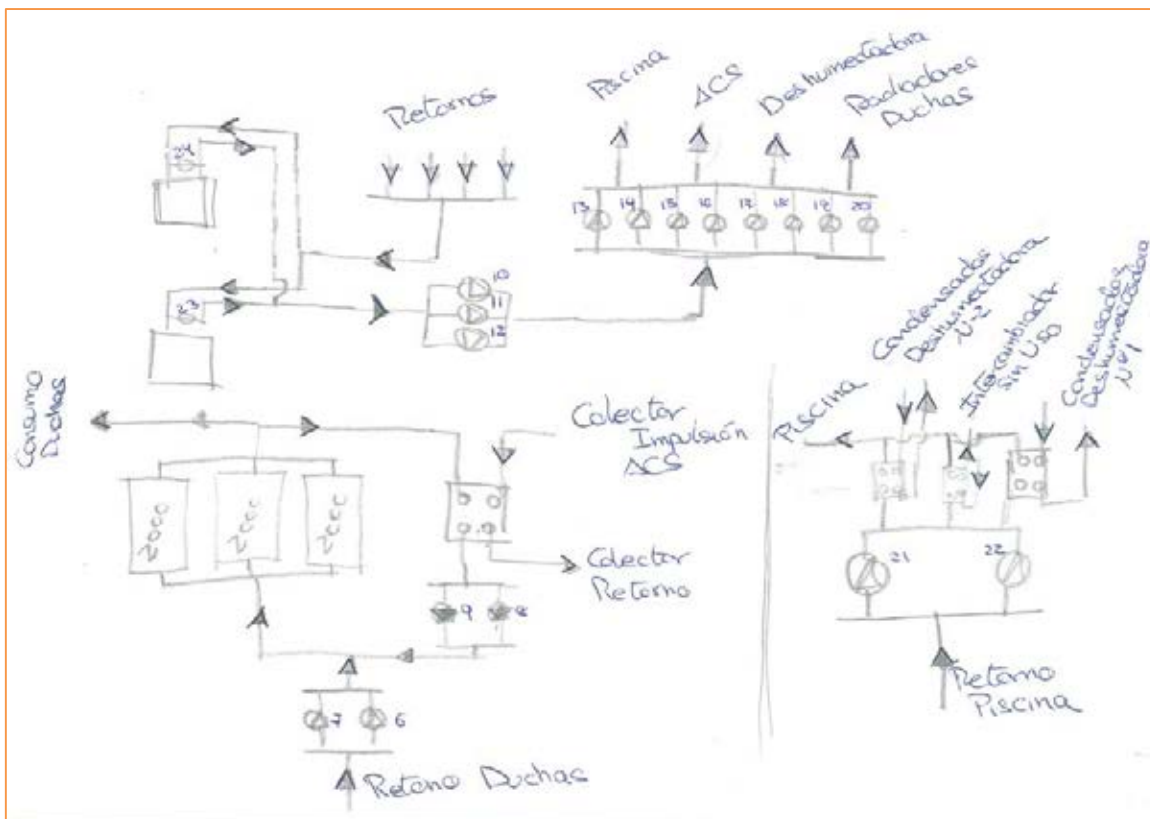 Retornos
Piscina
ACS
Deshumectadora
Radiadores
Duchas
24
13
14
15
16
17
18
19
20
23
10
11
12
Consumo
Duchas
2000
2000
2000
Colector
Impulsión
ACS
Colector
Retorno
9
8
7
6
Retorno Duchas
Piscina
Condensados
Deshumectadora
Nº2
Intercambiador
sin Uso
Condensados
Deshumectadora
Nº1
21
22
Retorno
Piscina